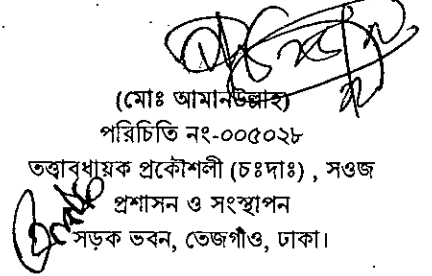 (মোঃ আমানউল্লাহ)
পরিচিতি নং-০০৫০২৮
তত্ত্বাবধায়ক প্রকৌশলী (চঃদাঃ) , সওজ
প্রশাসন ও সংস্থাপন
সড়ক ভবন, তেজগাঁও, ঢাকা।